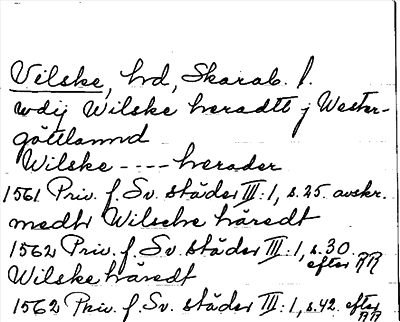 Vilske, hd, Skarab. l.
wdij Wilske heradtt j Wester-
göttlannd
Wilske ---- herader
1561 Priv. f. Sv. städer III:1, s. 25. avskr.
medhr Wilsche häredt
1562 Priv. f. Sv. städer III:1, s. 30
efter RR
Wilske häredt
1562 Priv. f. Sv. städer III:1, s. 42 efter
RR